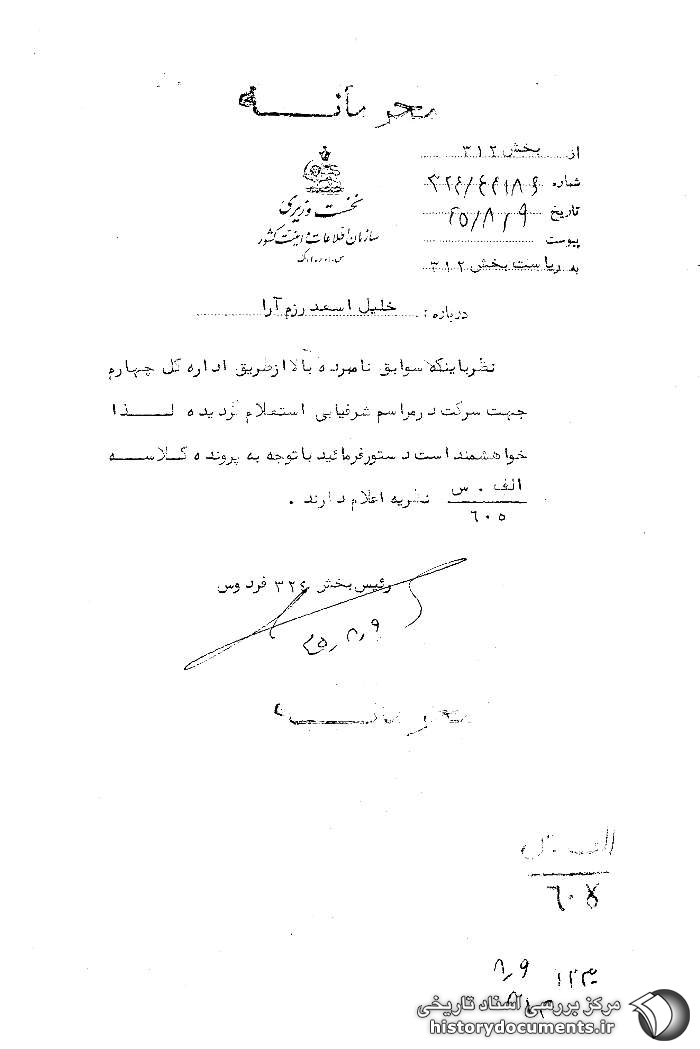 محرمانه
از بخش ۳۱۲
شماره
تاریخ ۴۵/۸/۹
پیوست
به ریاست بخش ۳۱۲
نخست وزیری
سازمان اطلاعات و امنیت کشور
درباره : خلیل اسعد رزم آرا
نظر باینکه سوابق نامبرده بالا از طریق اداره کل چهارم
جهت سرکت در مراسم شرفیابی استعلام گردیده لذا
خواهشمند است دستور فرمائید با توجه به پرونده کلاسه
الف . س
۶۰۵
نظریه اعلام دارند .
رئیس بخش ۳۲۴ فردوس
۴۵/۸/۹
محرمانه
الف . س
۶۰۵
۸/۹
مرکز بررسی اسناد تاریخی
historydocuments.ir